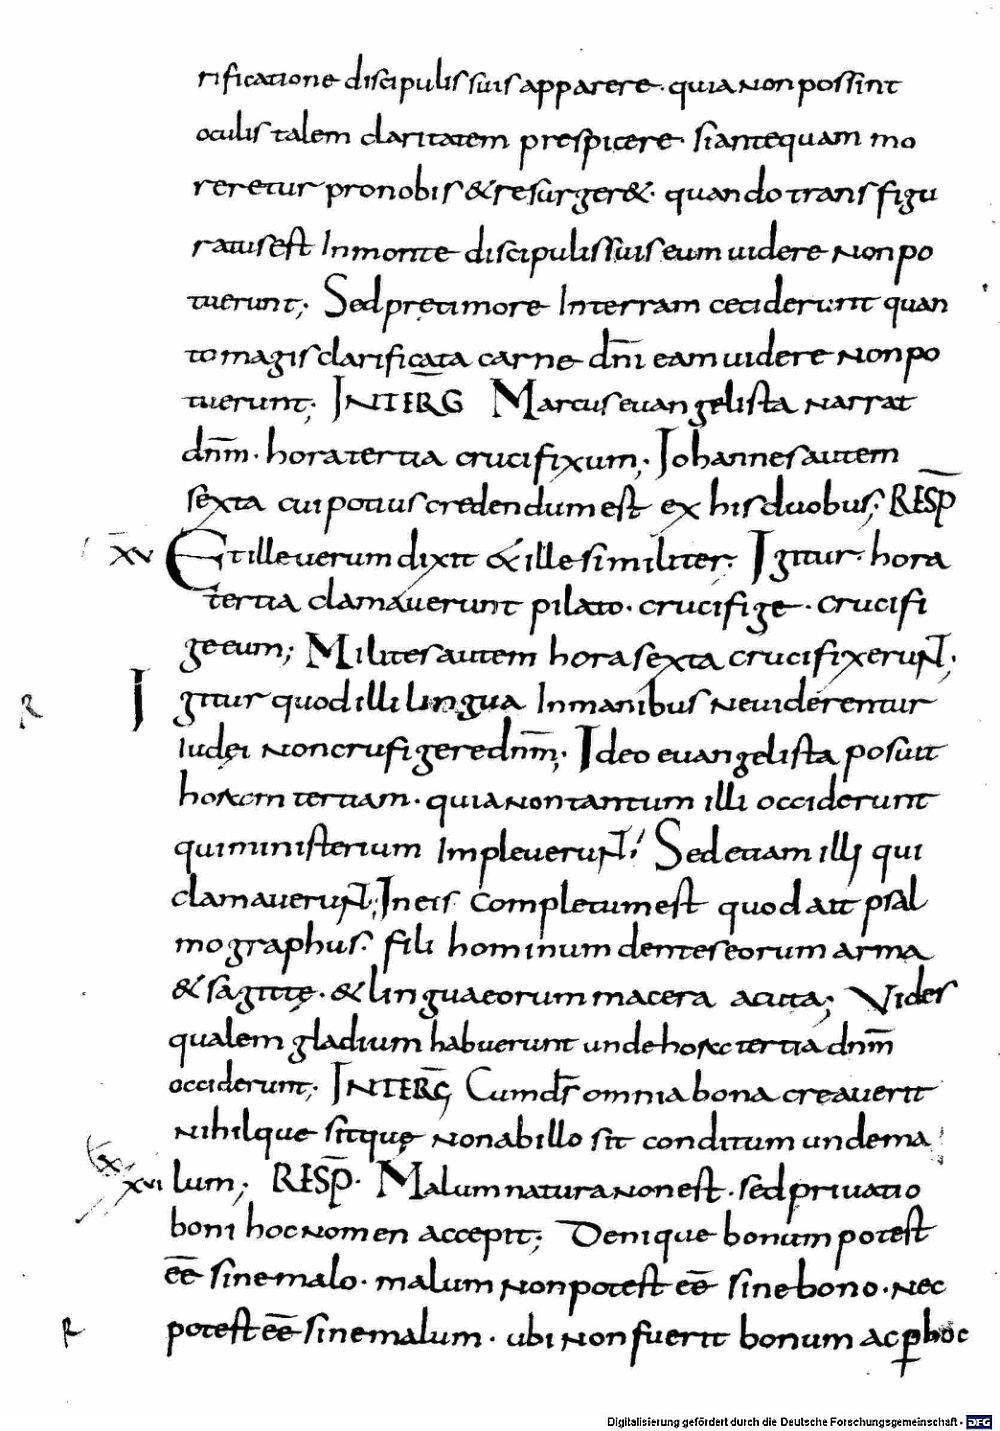 rificatione discipulis suis apparere · quia non possint
oculis talem claritatem prespicere · si antequam mo
reretur pro nobis & resurger& · quando transfigu
ratus est In monte discipulis suis eum uidere non po
tuerunt; Sed pre timore In terram ceciderunt quan
to magis clarificata carne dn̄i eam uidere non po
tuerunt; INTER̄G Marcus euangelista narrat
dn̄m · hora tertia crucifixum; Iohannes autem
sexta cui potius credendum est ex his duobus; RESP̄
X̄V Et ille uerum dixit & ille similiter · Igitur · hora
tertia clamauerunt pilato · crucifige · crucifi
ge eum; Milites autem hora sexta crucifixerunt;
R Igitur quod illi lingua In manibus ne uiderentur
iudęi non crufigere dn̄m; Ideo euangelista posuit
horam tertiam · quia non tantum illi occiderunt
qui ministerium Impleuerunt; Sed etiam illi qui
clamauerunt; In eis completum est quod ait psal
mographus · fili hominum dentes eorum arma
& sagittę · & lingua eorum macera acuta; Vides
qualem gladium habuerunt unde hora tertia dn̄m
occiderunt; INTER̄G Cum d̄s omnia bona creauerit
nihilque sit quę non ab illo sit conditum unde ma
XVI lum; RESP̄ · Malum natura non est · sed priuatio
boni hoc nomen accepit; Denique bonum potest
ēē sine malo · malum non potest ēē sine bono · nec
R potest ēē sine malum · ubi non fuerit bonum ac p̱ hoc
Digitalisierung gefördert durch die Deutsche Forschungsgemeinschaft - DFG